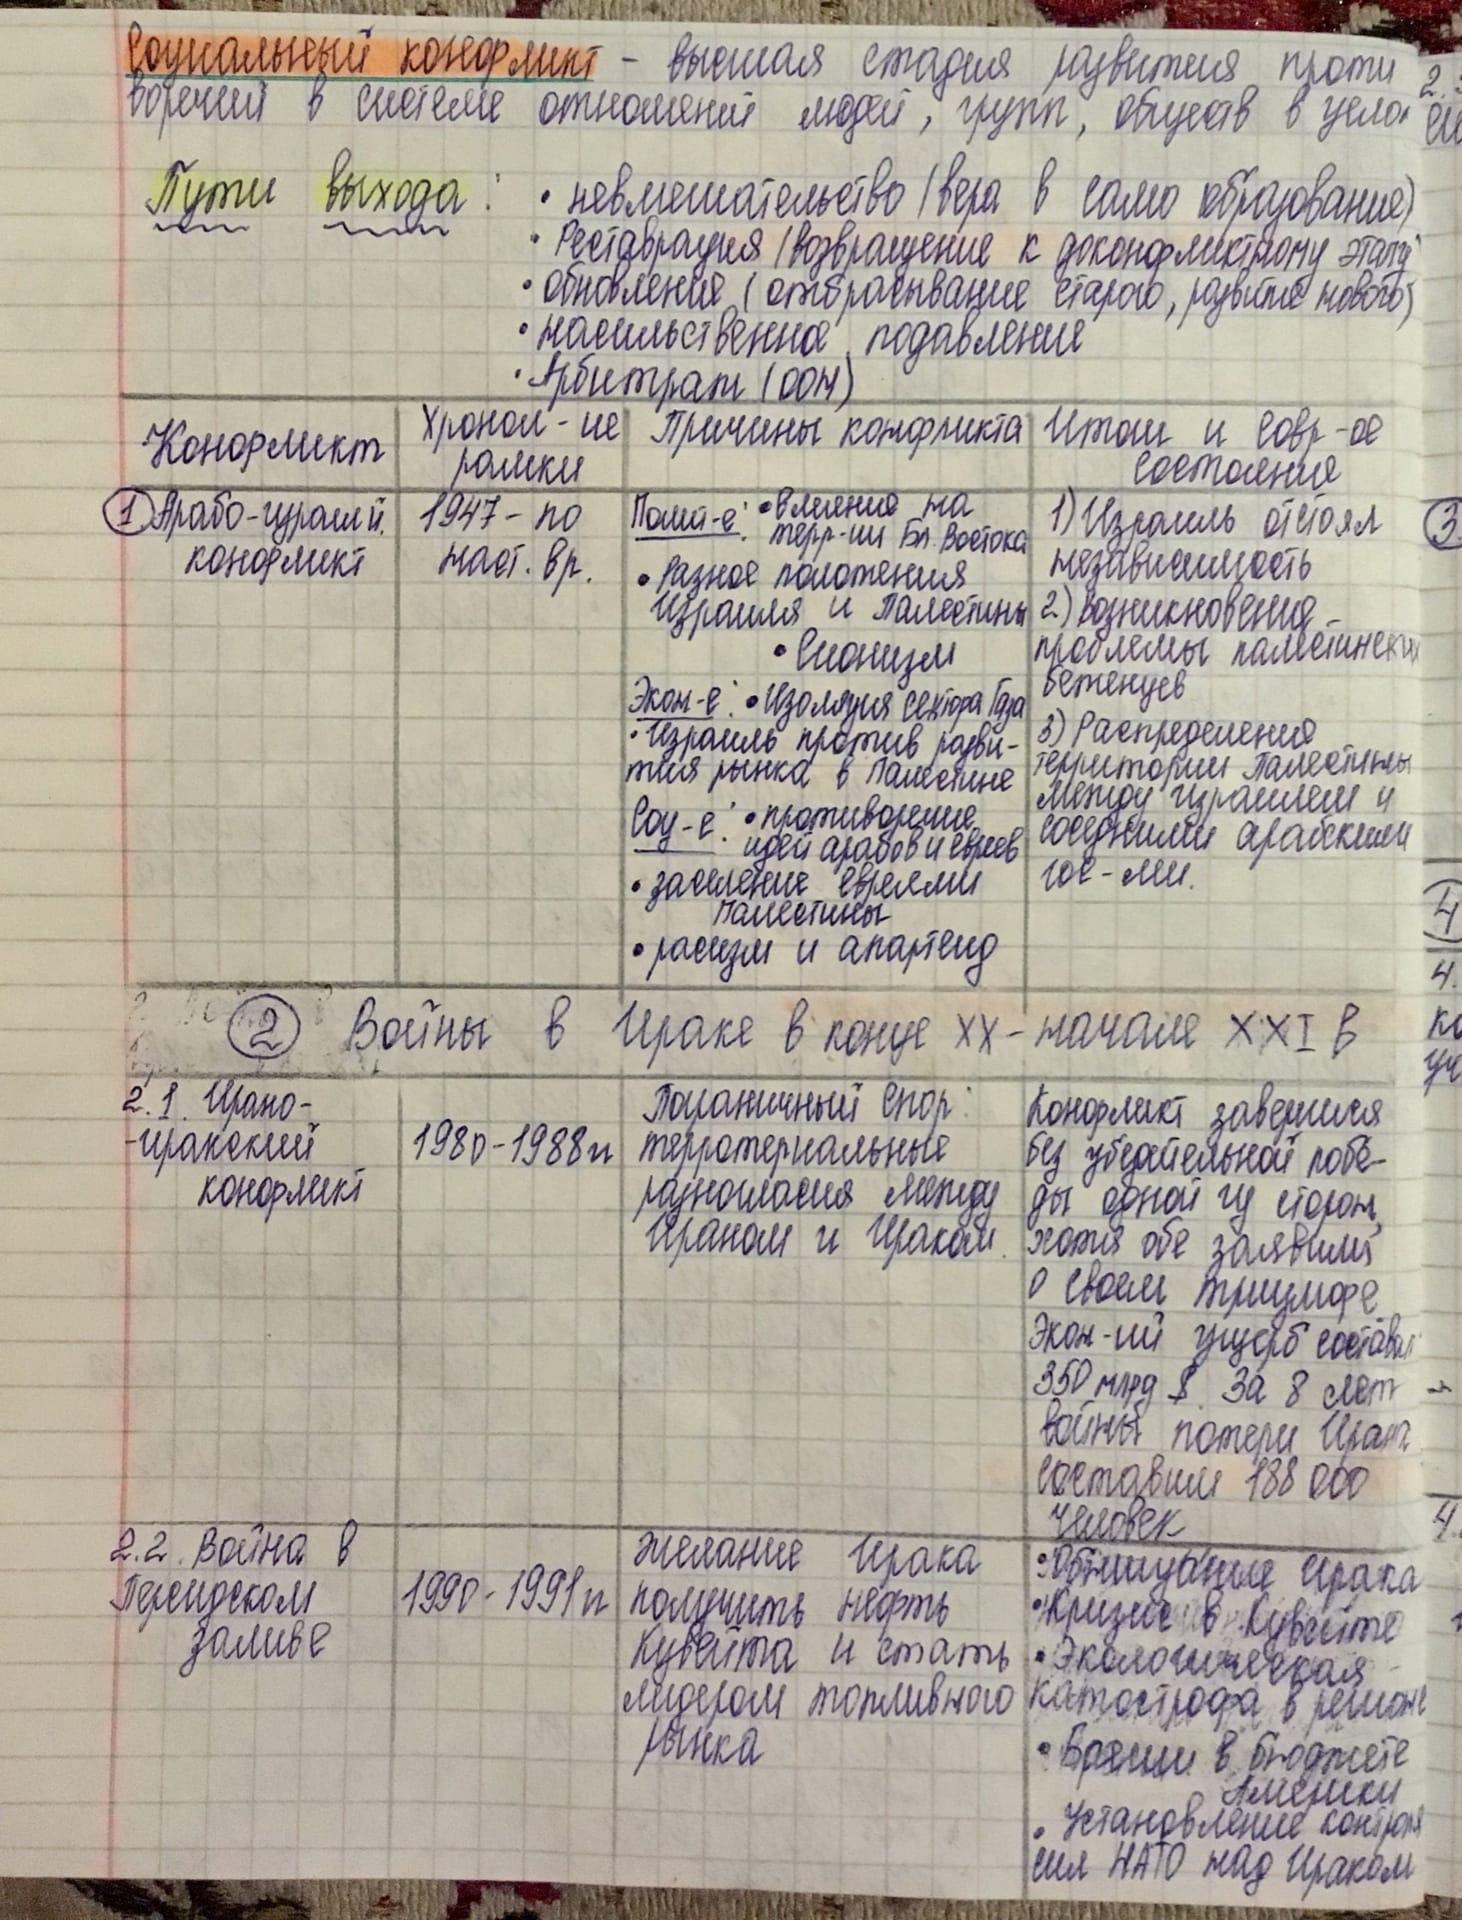 Социальный конфликт - высшая стадия развития проти
воречий в системе отношений людей, групп, обществ в целом
Пути выхода: • невмешательство (вера в само образование)
• Реставрация (возвращение к доконфликтному этапу)
• обновления (отбрасывание старого, развитие нового)
• насильственное подавление
• Арбитраж (ООН)
Конфликт
Хронол-ие
рамки
Причины конфликта
Итоги и совр-ое
состояние
1 Арабо-израил й.
конфликт
1947 - по
наст. вр.
Полит-е: • влияние на
терр-ии Бл. Востока
• Разное положения
Израиля и Палестины
• Сионизм
Экон-е: • Изоляция сектора Газа
• Израиль против разви-
тия рынка в Палестине
Соц-е: • противоречие
идей арабов и евреев
• заселение евреями
Палестины
• расизм и апартеид
1) Израиль отстоял
независимость
2) Возникновения
проблемы палестинских
беженцев
3) Распределения
территории Палестины
между Израилем и
соседними арабскими
гос-ми.
2 Войны в Ираке в конце XX - начале XXI в
2.1. Ирано-
-иракский
конфликт
1980-1988гг
Пограничный спор:
терротериальные
разногласия между
Ираном и Ираком.
Конфликт завершился
без убедительной побе-
ды одной из сторон,
хотя обе заявили
о своем триумфе
Экон-ий ущерб составил
350 млрд $. За 8 лет
войны потери Иран
составили 188 000
человек
2.2. Война в
Персидском
заливе
1990-1991гг
Желание Ирака
получить нефть
Кувейта и стать
лидером топливного
рынка
• Обнищание Ирака
• Кризис в Кувейте
• Экологическая
катострофа в регионе
• Бреши в бюджете
Америки
• Установление контроля
сил НАТО над Ираком
3
4
4.